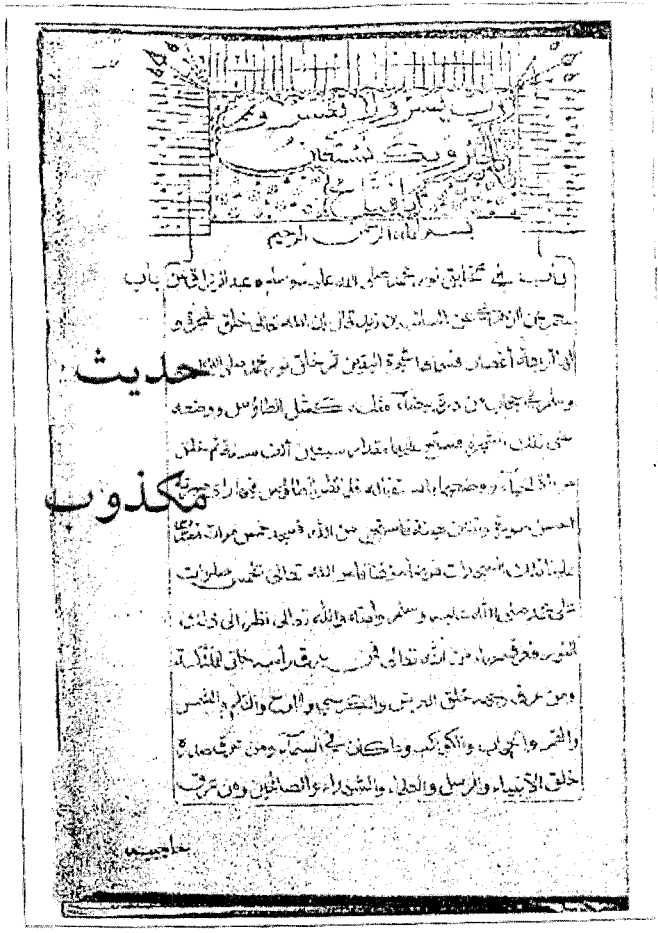 رب يسر ولا تعسر وتمم
بالخير وبك نستعين
يا فتاح
بسم الله الرحمن الرحيم
باب في تخليق نور محمد صلى الله عليه وسلم عبد الرزاق عن
معمر عن الزهري عن السائب بن زيد قال إن الله تعالى خلق شجرة و
لها أربعة أغصان فسماها شجرة اليقين ثم خلق نور محمد صلى الله عليه
وسلم في حجاب من درة بيضاء مثله كمثل الطاؤس ووضعه
على تلك الشجرة فسبح عليها مقدار سبعين ألف سنة ثم خلق
مرآة الحياء ووضعها باستقباله فلما نظر الطاؤس فيها رأى صورته
احسن صورة وأزين هيئة فاستحيى من الله فسجد خمس مرات فصارت
علينا تلك السجدات فرضا موقتا فأمر الله تعالى بخمس صلوات
على محمد صلى الله عليه وسلم وأمته والله تعالى نظر الى ذلك
النور فعرق حياء من الله تعالى فمن عرق رأسه خلق الملئكة
ومن عرق وجهه خلق العرش والكرسي واللوح والقلم والشمس
والقمر والحجاب والكواكب وما كان في السماء ومن عرق صدره
خلق الأنبياء والرسل والعلماء والشهداء والصالحين ومن عرق
حاجبيه
باب
حديث
مكذوب